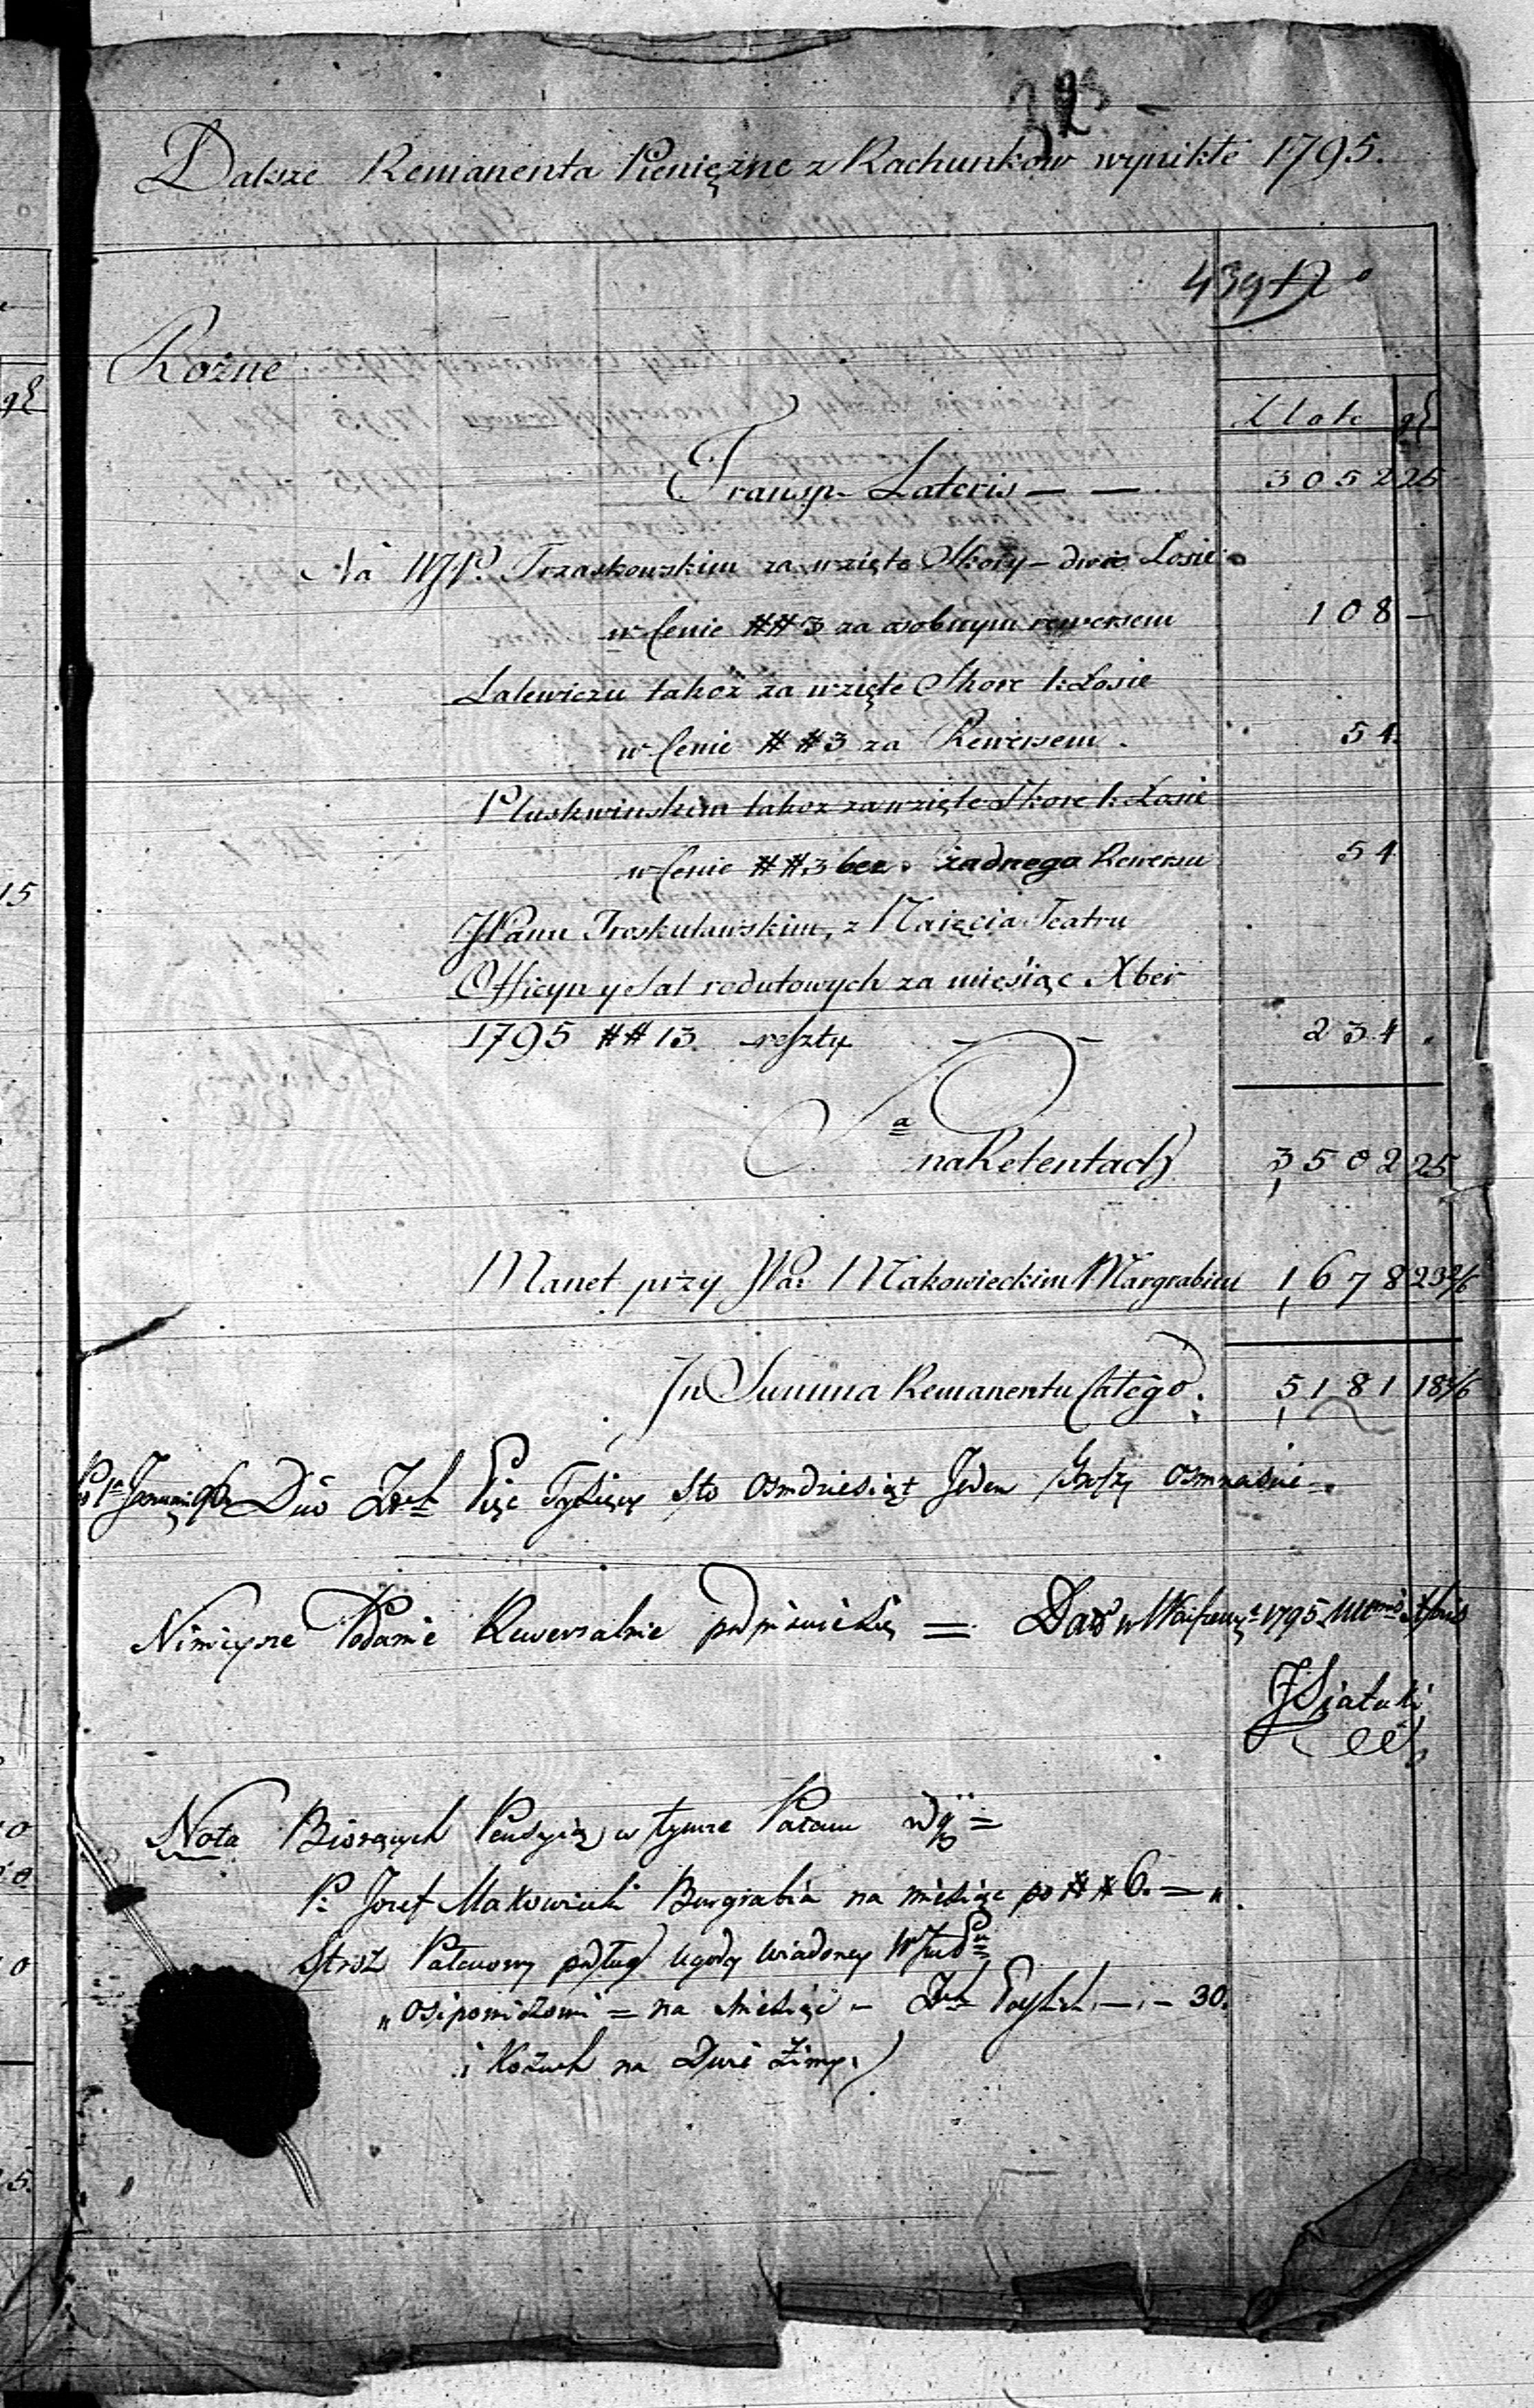 Dalsze Remanenta Pieniężne z Rachunkow wynikłe 1795.
Rożne
Złote gł
Transp. Lateris — — 3052 25
Na WJP. Trzaskowskim za wzięte Skory – dwie Łosie
w Cenie ##3 za osobnym rewersem 108 —
Lalewiczu takoż za wzięte Skore 1: Łosie
w Cenie ##3 za Rewersem. 54.
Pluskwinskim takoz za wzięte Skore 1: Łosie
w Cenie ##3 bez żadnego Rewersu 54
JPanu Troskuławskim, z Naięcia Teatru
Officyn y Sal redutowych za miesiąc Xber
1795 ##13 reszty 234
Sa
na Retentach 3502 25
Manet przy JPa: Makowieckim Margrabiu 1,678 23 2/6
Jn Summa Remanentu Całego. 5,181 18 2/6
Duo Pięc Tysięcy Sto Osmdziesiąt Jeden Groszy Osmnaście
Ninieysze Podanie Rewersalnie = Dat w 1795
Nota Biorących Pensyią w tymże Pałacu
P: Jozef Makowiecki Burgrabia na miesiąc po ##6. =
Stroż Pałacowy podług ugody wiadomey
Osipowiczowi = na Miesiąc – — 30.
i Kożuch na Dwie Zimy.